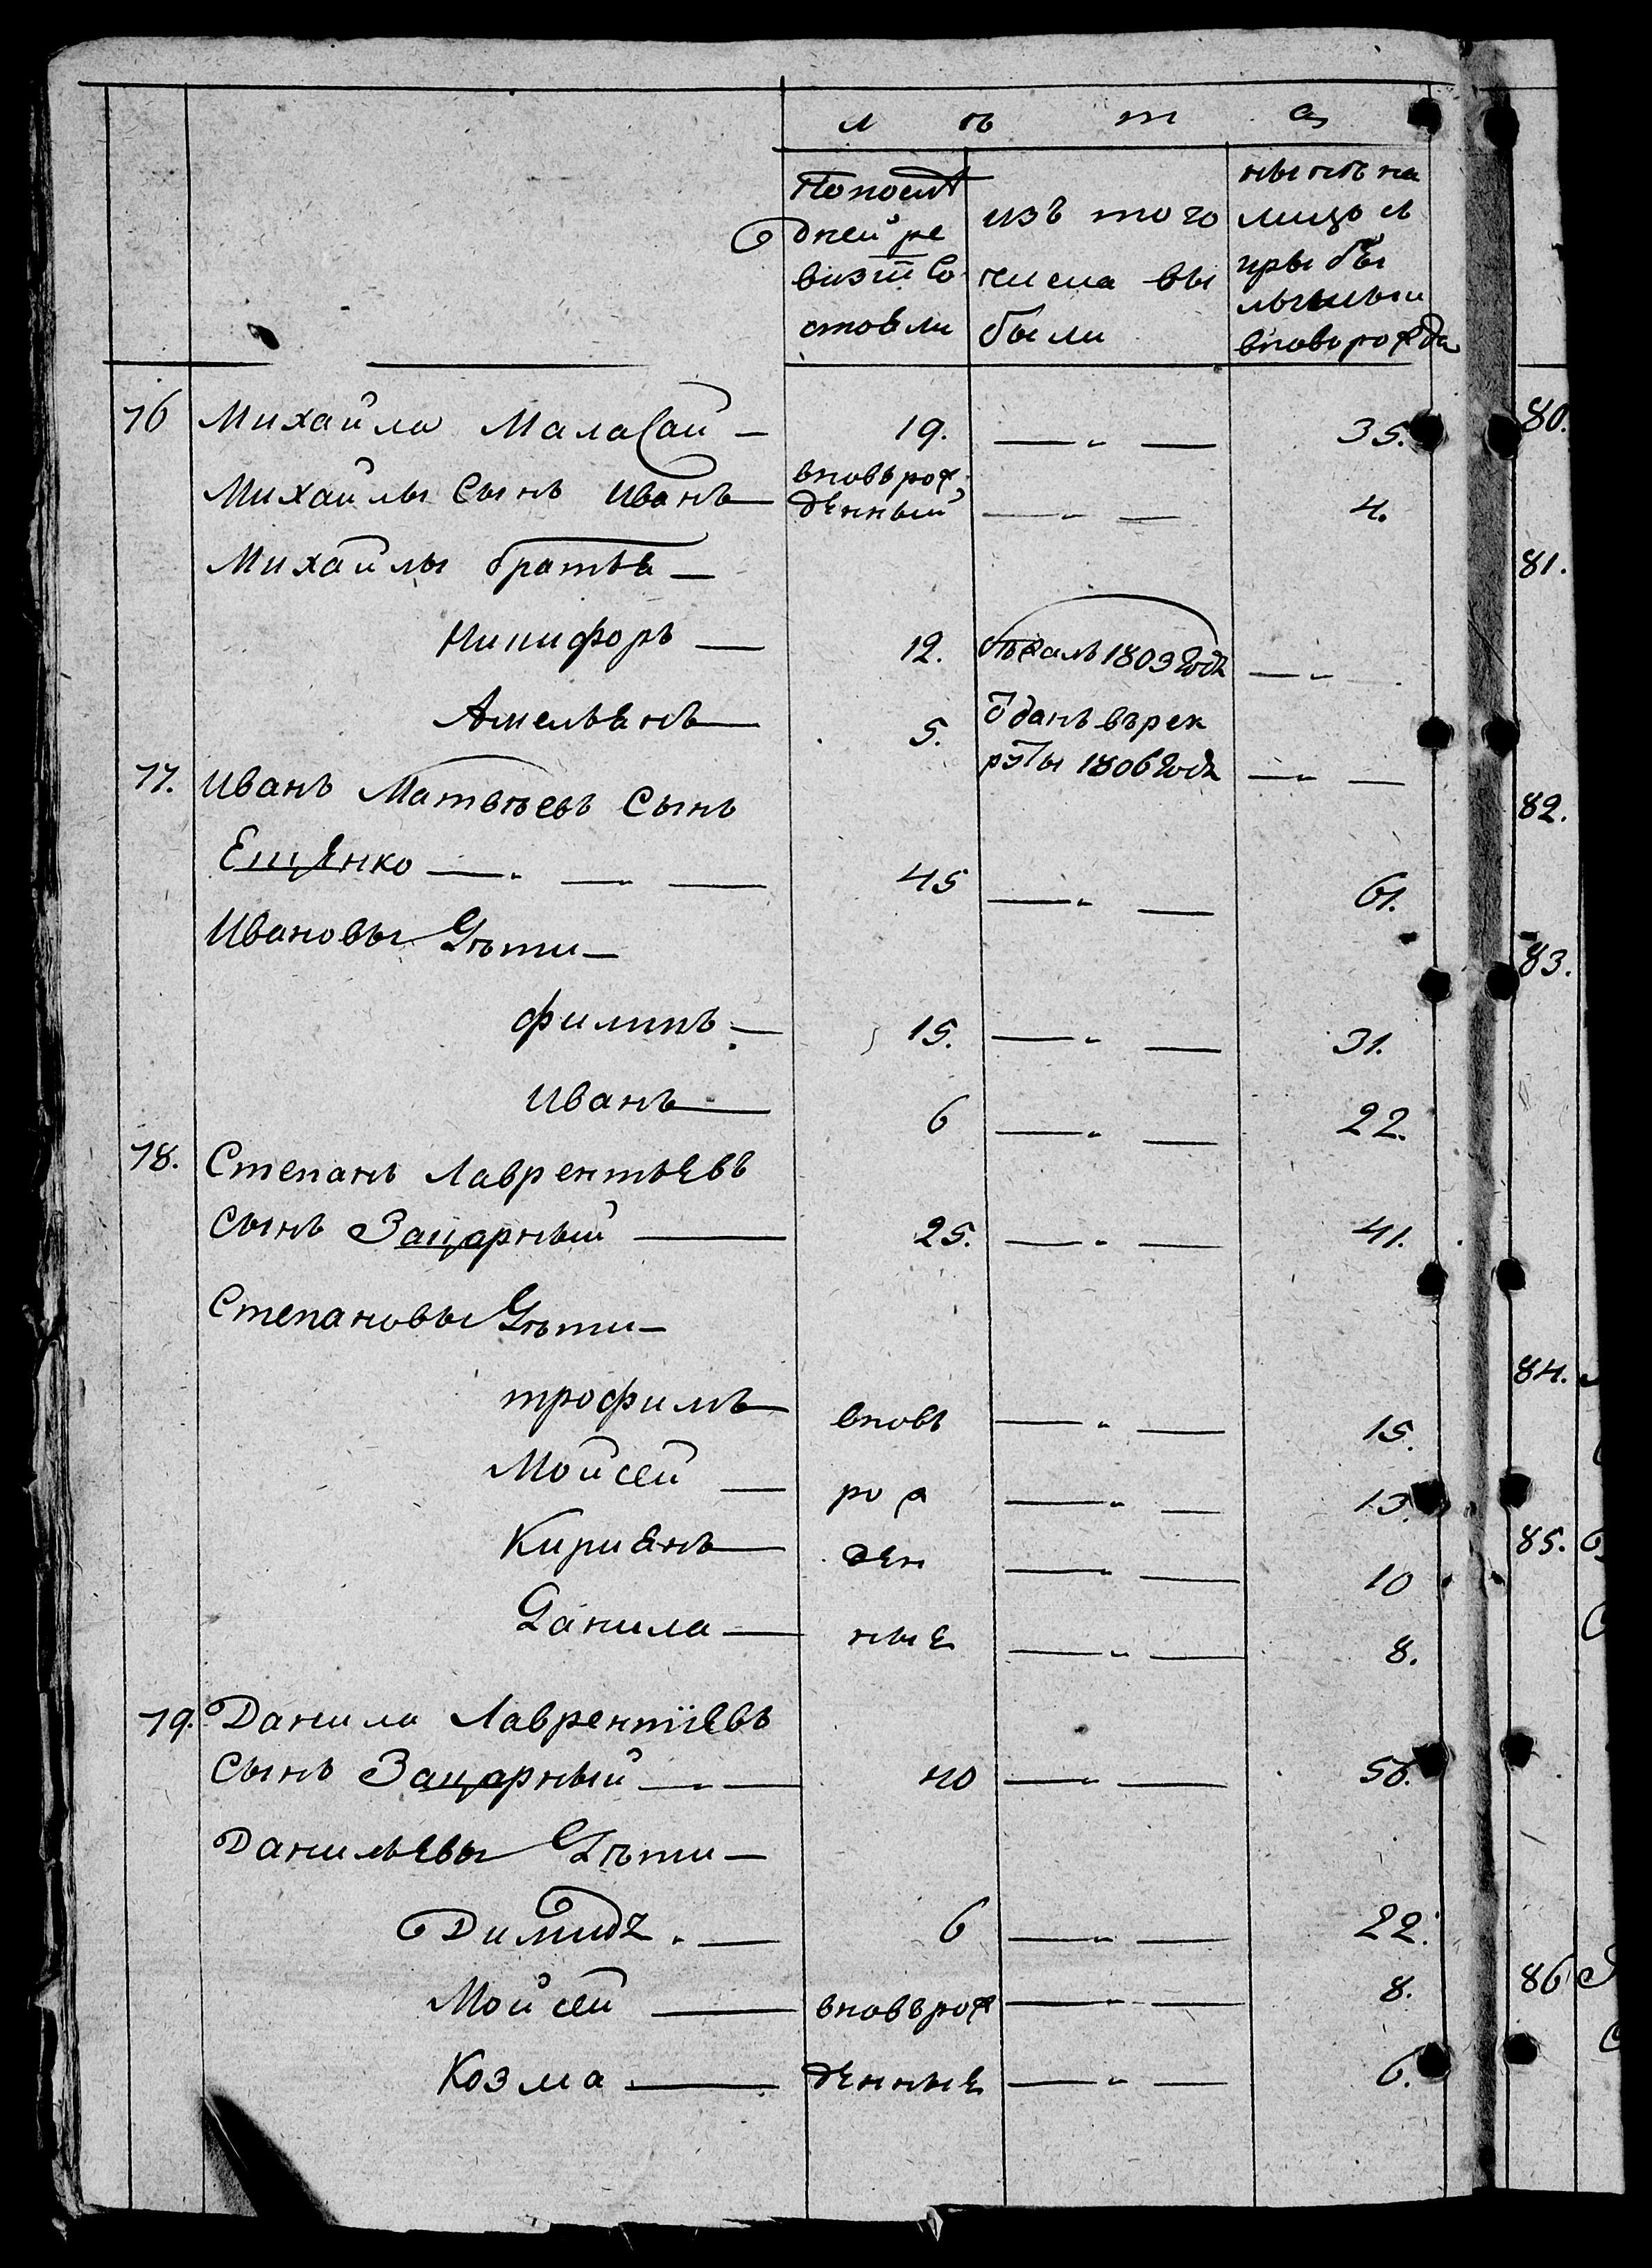 л ѣ т а
По послѣ
дней ре
визіи со
стояли
изъ того
числа вы
были
нынѣ на
лицо и
вновь рожда
76 Михайла Мала
19. — „ — 35.
Михайлы Сынъ Иванъ — вновь рож
денный — „ — 4.
Михайлы братья —
Никифоръ — 12. бѣжалъ 1803 года — „ —
Амельянъ — 5. ѿданъ въ рек
руты 1806 года — „ —
77. Иванъ Матвѣевъ Сынъ
Ещенко — „ — „ — 45 — „ — 61.
Ивановы Дѣти —
Филипъ — 15. — „ — 31.
Иванъ — 6 — „ — 22.
78. Степанъ Лаврентьевъ
Сынъ Зацарный — 25. — „ — 41.
Степановы Дѣти —
трофимъ — вновь — „ — 15.
Мойсей — рож — „ — 13.
Кириянъ — ден — „ — 10
Данила — ные — „ — 8.
79. Данила Лаврентіевъ
Сынъ Зацарный — „ — 40 — „ — 56.
Данильевы Дѣти —
Димидъ „ — 6 — „ — 22.
Мойсей — вновь рож — „ — 8.
Козма — денные — „ — 6.
80.
81.
82.
83.
84.
85.
86